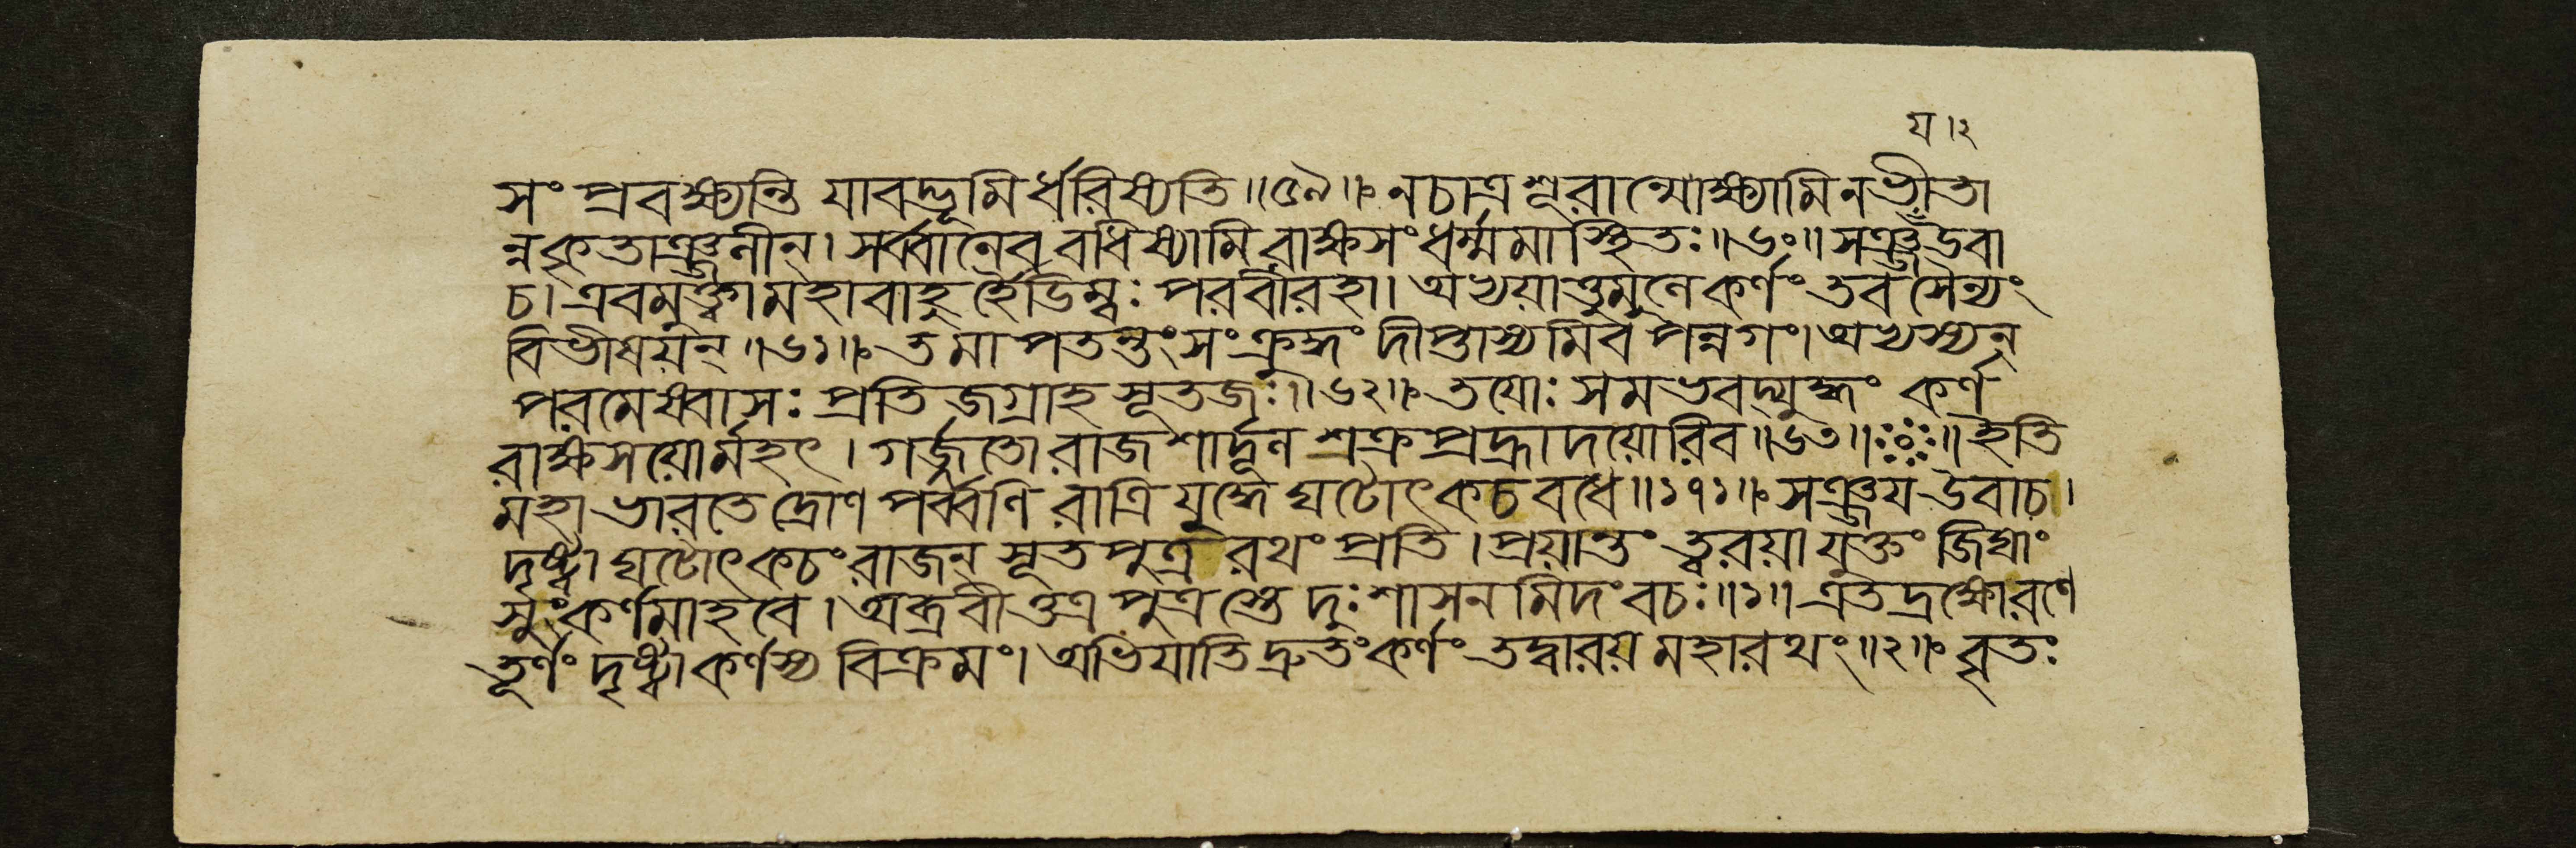 য।২
সং প্রবক্ষ্যন্তি যাবদ্ভূমির্ধরিষ্যতি॥৫৯॥ নচাত্র শূরান্মোক্ষ্যামি ন ভীতা
ন্নকৃতাঞ্জলীন্। সর্ব্বানেব বধিষ্যামি রাক্ষসং ধর্ম্মমাস্থিতঃ॥৬০॥ সঞ্জয়উবা
চ। এবমুক্ত্বা মহাবাহুর্হৈডিম্বঃ পরবীরহা। অভ্যয়াত্তুমুলে কর্ণং তব সৈন্যং
বিভীষয়ন্॥৬১॥ তমাপতন্তং সংক্রুদ্ধং দীপ্তাস্যমিব পন্নগং। অভ্যস্যন্
পরমেষ্বাসঃ প্রতিজগ্রাহ সূতজঃ॥৬২॥ তয়োঃ সমভবদ্যুদ্ধং কর্ণ
রাক্ষসয়োর্মহৎ। গর্জ্জতো রাজশার্দ্দূল শক্রপ্রহ্রাদয়োরিব॥৬৩॥ ॥ ইতি
মহাভারতে দ্রোণপর্ব্বণি রাত্রিযুদ্ধে ঘটোৎকচবধে॥১৭১॥ সঞ্জয় উবাচ।
দৃষ্ট্বা ঘটোৎকচং রাজন্ সূতপুত্র রথং প্রতি। প্রয়ান্তং ত্বরয়া যুক্তং জিঘাং
সুং কর্ণমাহবে। অব্রবীত্তত্র পুত্রস্তে দুঃশাসনমিদং বচঃ॥১॥ এতদ্রক্ষো রণে
তূর্ণং দৃষ্ট্বা কর্ণস্য বিক্রমং। অভিযাতি দ্রুতং কর্ণং তদ্বারয় মহারথং॥২॥ বৃতঃ